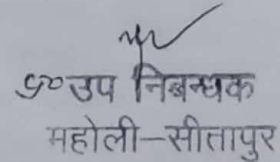 उप निबन्धक
महोली-सीतापुर